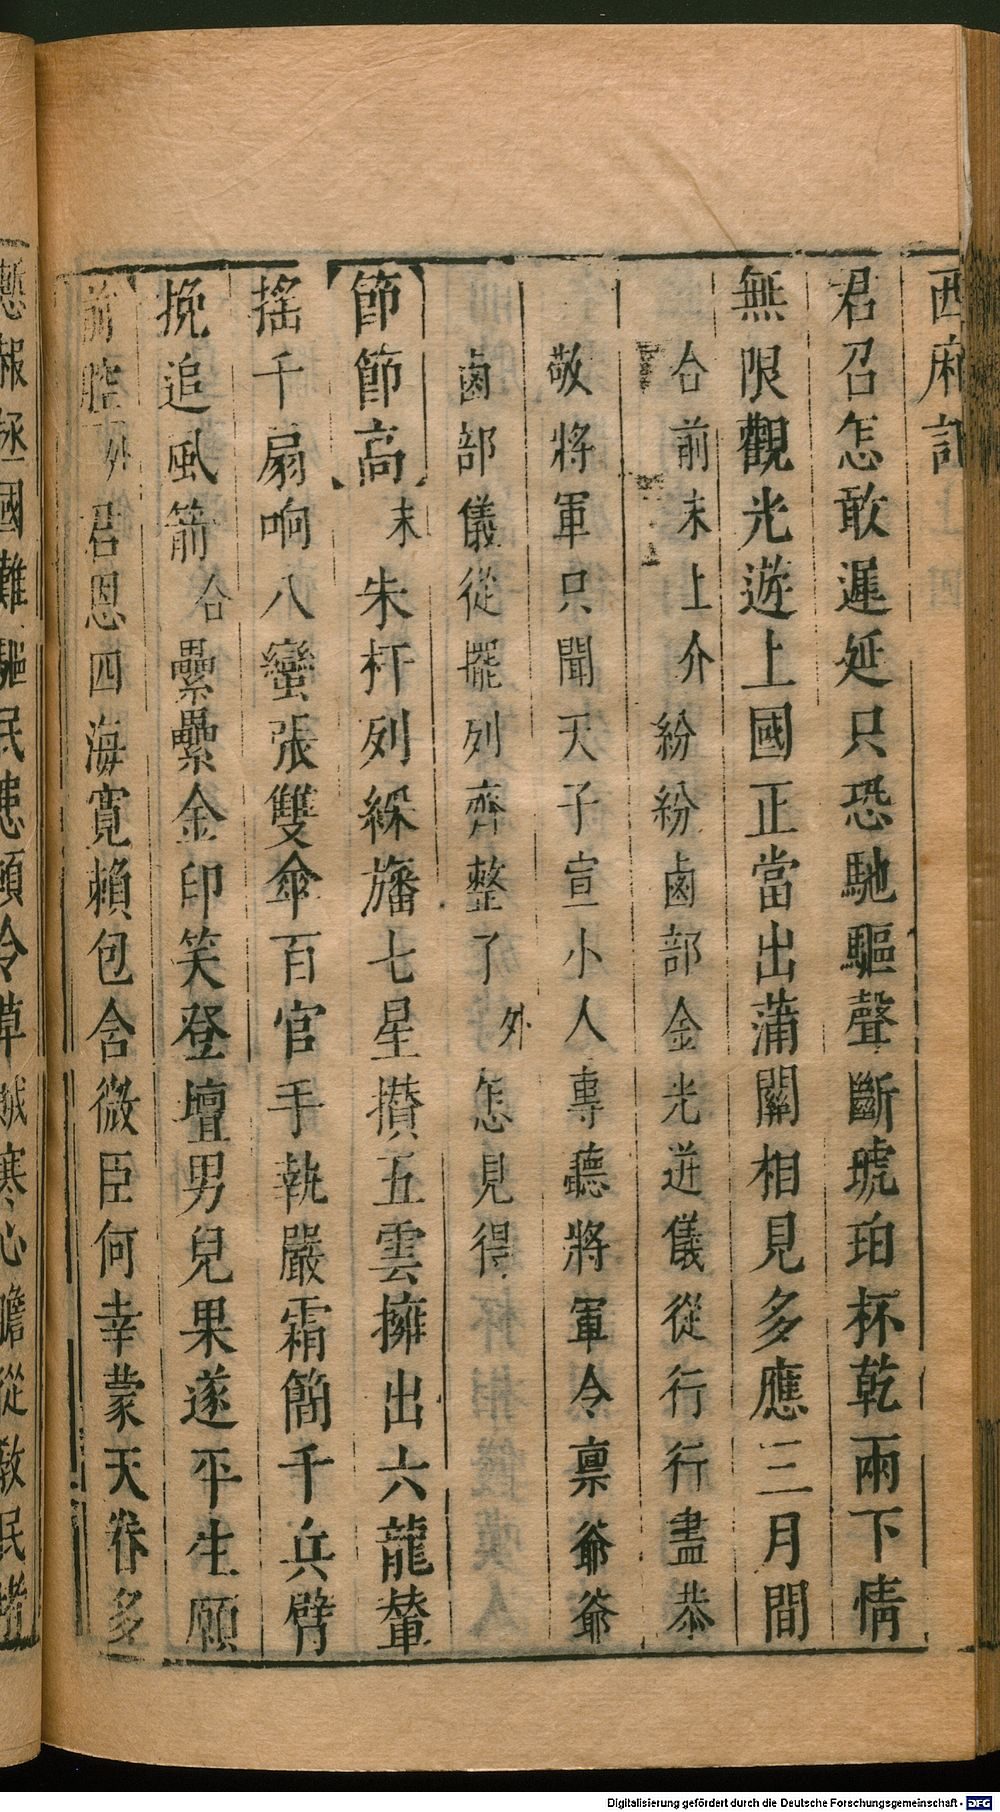 西廂記
君召怎敢遲延只恐馳驅聲斷琥珀杯乾兩下情
無限觀光遊上國正當出蒲關相見多應三月間
合前末上介紛紛鹵部金光迸儀從行行盡恭
敬將軍只聞天子宣小人專聽將軍令禀爺爺
鹵部儀從擺列齊整了外怎見得
【節節高】末朱杆列綵旛七星攅五雲擁出六龍輦
搖千扇响八蠻張雙傘百官手執嚴霜簡千兵臂
挽追風箭合纍纍金印笑登壇男兒果遂平生願
前腔外君恩四海寬賴包含微臣何幸蒙天眷多
慙報拯國難驅民患願令草賊寒心膽從教民堵
Digitalisierung gefördert durch die Deutsche Forschungsgemeinschaft - DFG